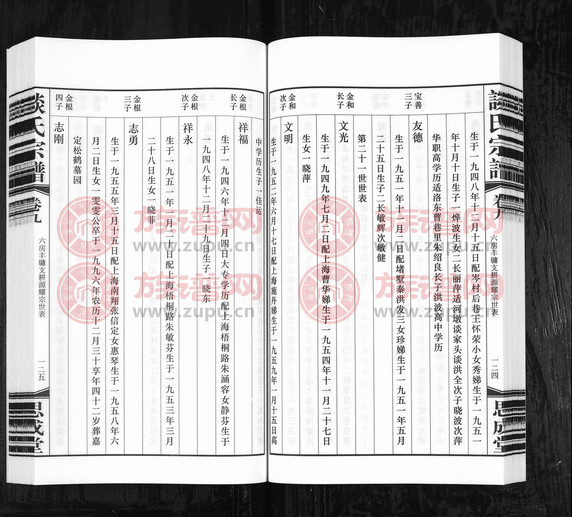 談氏宗譜
卷九
六房丰镛支耕源耀宗世表
一二四
思成堂
生于一九四八年十二月十二日配岑村后巷王怀荣小女秀娣生于一九五
年十月十日生子一烨波生女二长丽萍适河墩谈家头谈洪全次子晓波次萍
华职高学历适洛东曹巷里朱绍良长子洪波高中学历
宝善
三子
友德
生于一九五二年
日配堵墅秦洪发三女珍娣生于一九五五年五月
二十五日生子二长敏辉次敏健
第二十一世世表
金和
长子
文光
日配上海曹华娣生于一九五四年十二月二十七日
生女一晓萍
金和
次子
文明
生于一九五二年六月十七日配上海施丹娣生于一九五九年一月十五日高
中学历生子一佳运
金根
长子
祥福
生于一九四六年十二月四日大专学历配上海梧桐路朱涵容女静芬生于
一九四八年十二月二十九日生子一晓东
金根
次子
祥永
生于一九五一年一月二十日配上海梧桐路朱敏芬生于一九五三年三月
二十八日生女一晓菲
金根
三子
志勇
生于一九五五年三月十五日配上海南翔张信定女惠琴生于一九五八年六
月二日生女一雯雯公卒于一九九六年农历十二月三十享年四十二岁葬嘉
定松鹤墓园
金根
四子
志刚
談氏宗譜
卷九
六房丰镛支耕源耀宗世表
一二五
思成堂
族谱网
www.zupu.cn